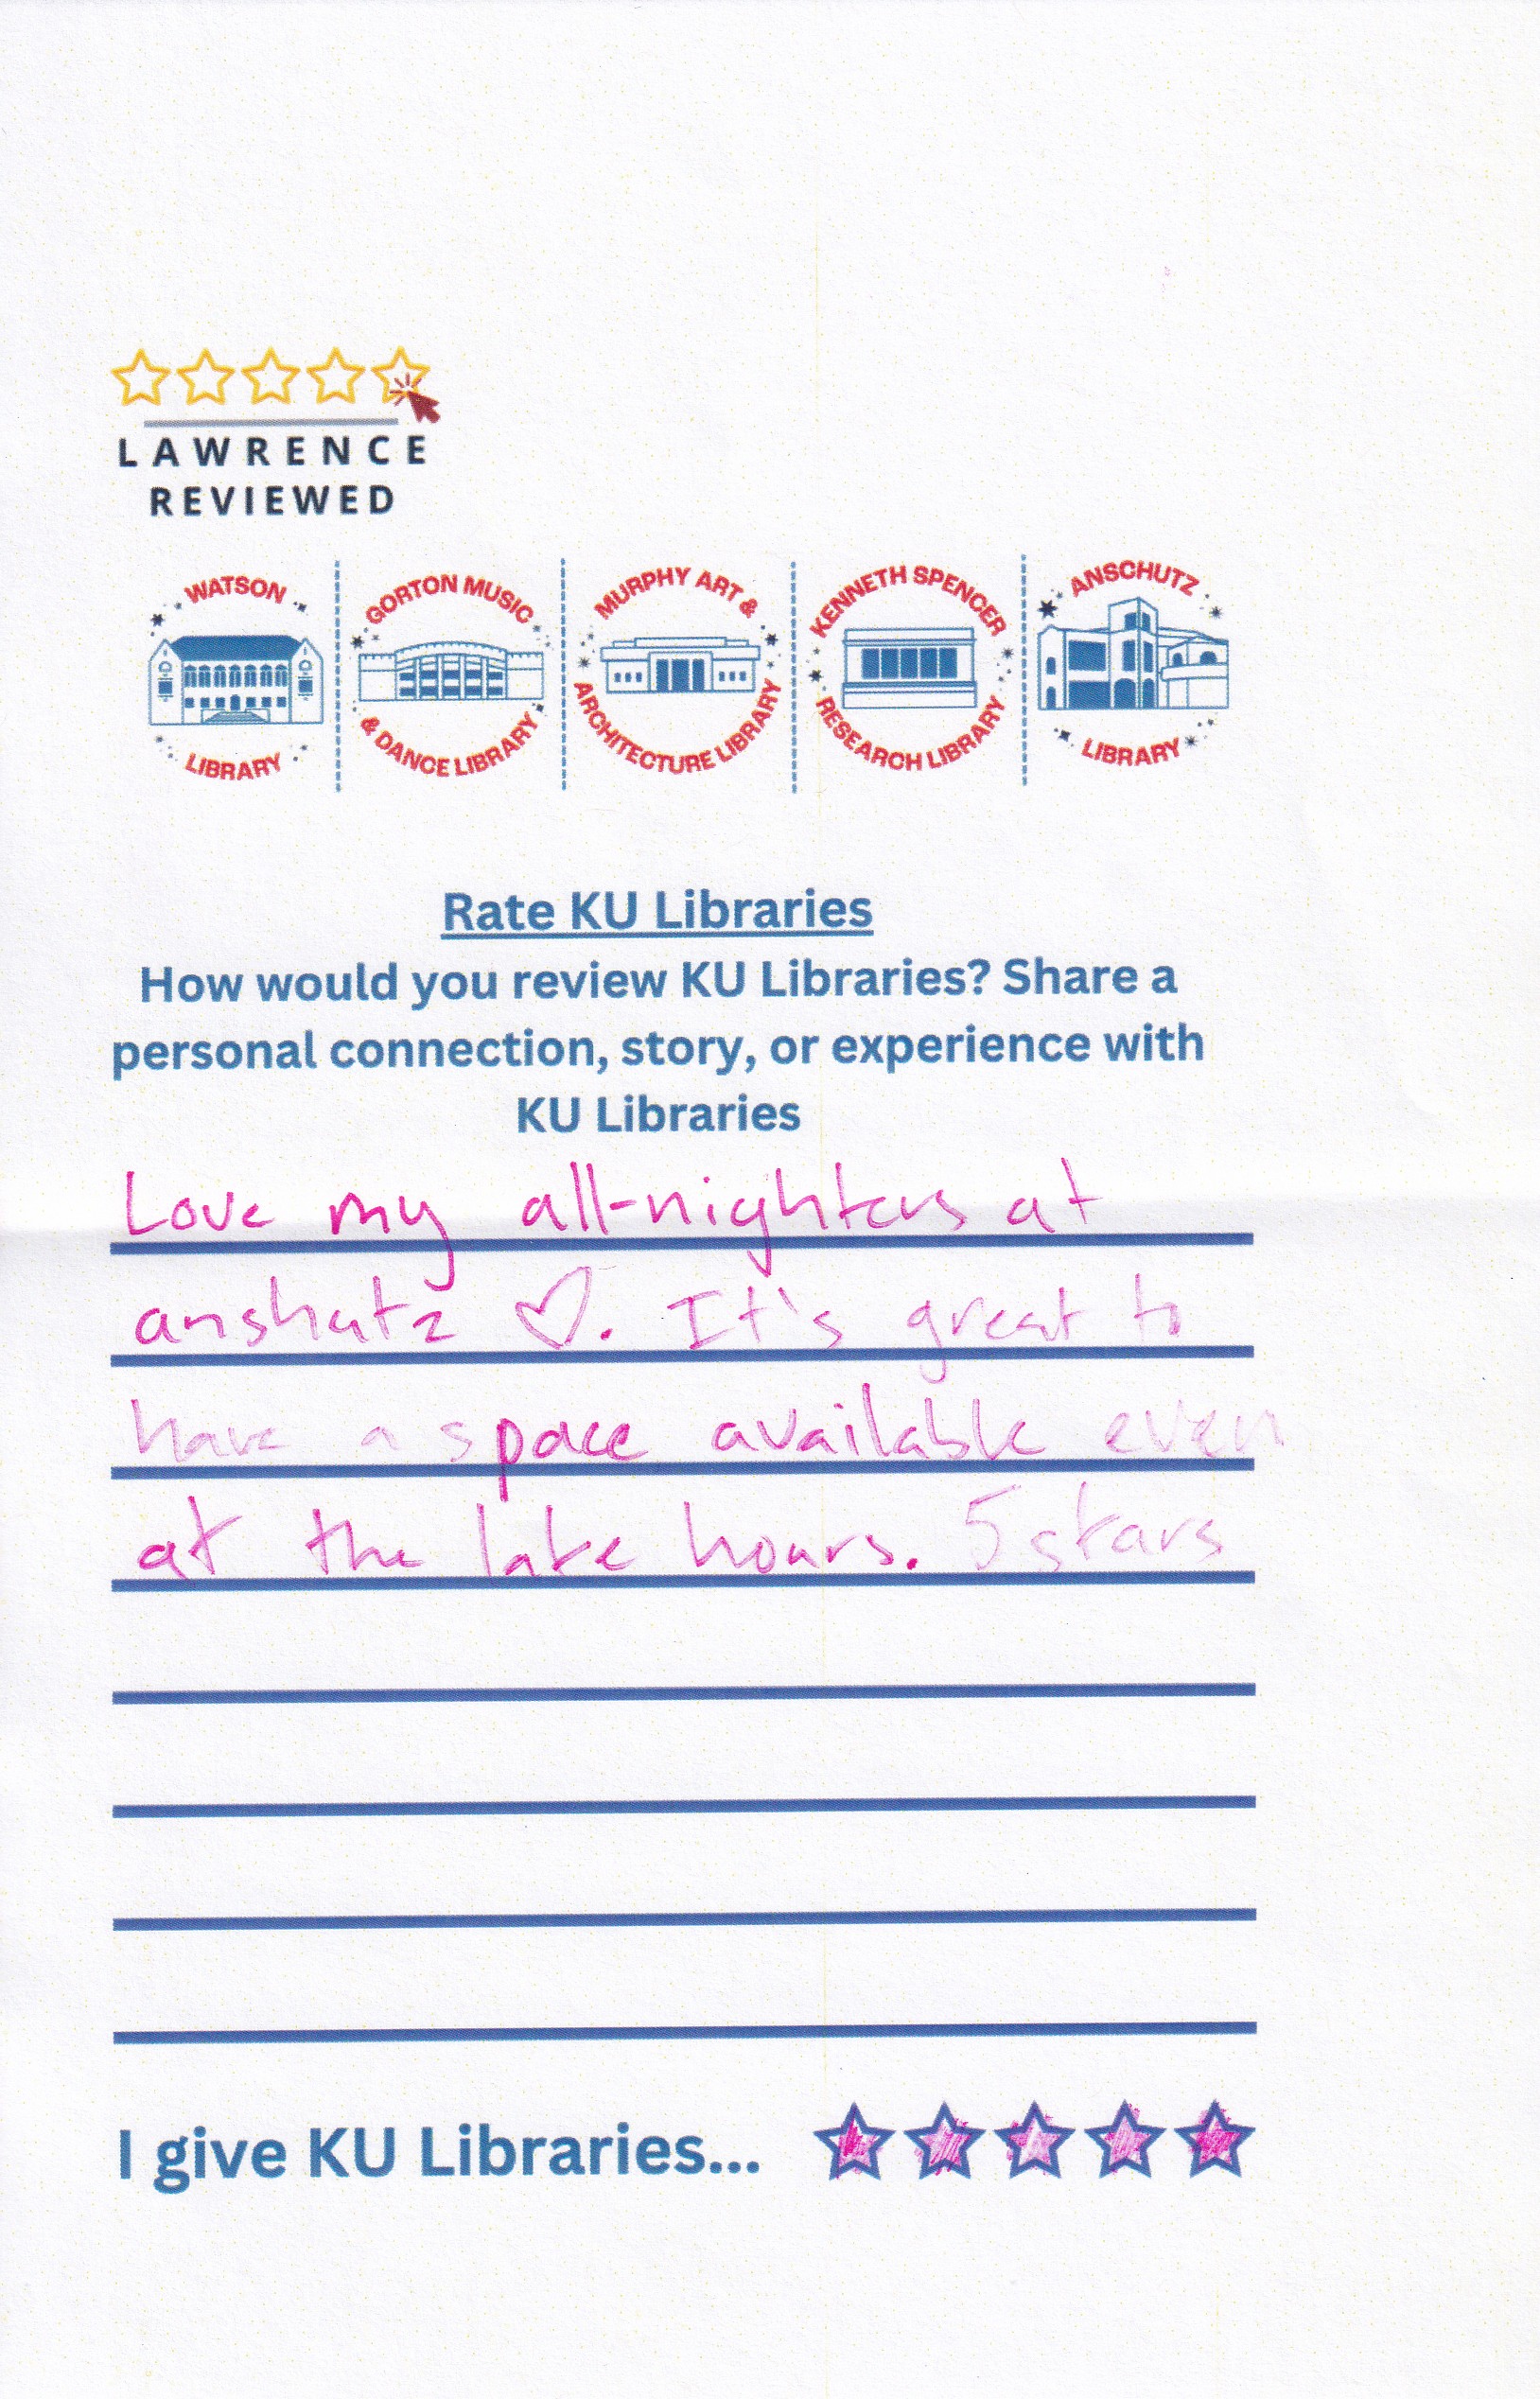 LAWRENCE
REVIEWED
WATSON
LIBRARY
GORTON MUSIC
& DANCE LIBRARY
MURPHY ART &
ARCHITECTURE LIBRARY
KENNETH SPENCER
RESEARCH LIBRARY
ANSCHUTZ
LIBRARY
Rate KU Libraries
How would you review KU Libraries? Share a
personal connection, story, or experience with
KU Libraries
Love my all-nighters at
anshutz ♡. It's great to
have a space available even
at the late hours. 5 stars
I give KU Libraries...